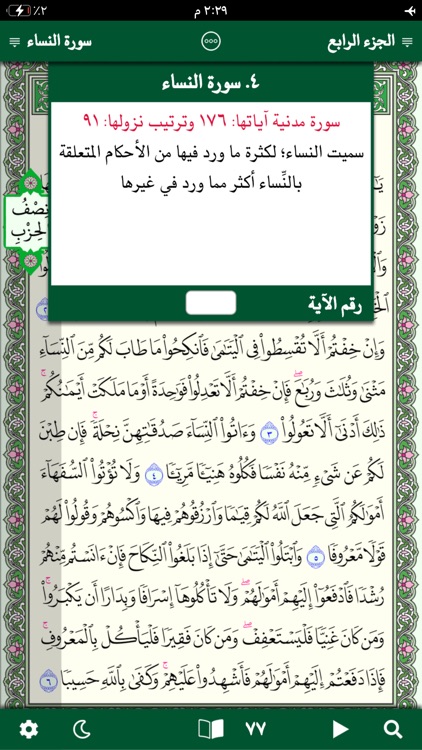 ٪٢ ٢:٢٩ م
الجزء الرابع
سورة النساء
٤. سورة النساء
سورة مدنية آياتها: ١٧٦ وترتيب نزولها: ٩١
سميت النساء؛ لكثرة ما ورد فيها من الأحكام المتعلقة
بالنِّساء أكثر مما ورد في غيرها
رقم الآية
نِصْفُ
الحِزْبِ
وَإِنْ خِفْتُمْ أَلَّا تُقْسِطُوا۟ فِى ٱلْيَتَٰمَىٰ فَٱنكِحُوا۟ مَا طَابَ لَكُم مِّنَ ٱلنِّسَآءِ
مَثْنَىٰ وَثُلَٰثَ وَرُبَٰعَ ۖ فَإِنْ خِفْتُمْ أَلَّا تَعْدِلُوا۟ فَوَٰحِدَةً أَوْ مَا مَلَكَتْ أَيْمَٰنُكُمْ ۚ
ذَٰلِكَ أَدْنَىٰٓ أَلَّا تَعُولُوا۟ ٣ وَءَاتُوا۟ ٱلنِّسَآءَ صَدُقَٰتِهِنَّ نِحْلَةً ۚ فَإِن طِبْنَ
لَكُمْ عَن شَىْءٍ مِّنْهُ نَفْسًا فَكُلُوهُ هَنِيٓـًٔا مَّرِيٓـًٔا ٤ وَلَا تُؤْتُوا۟ ٱلسُّفَهَآءَ
أَمْوَٰلَكُمُ ٱلَّتِى جَعَلَ ٱللَّهُ لَكُمْ قِيَٰمًا وَٱرْزُقُوهُمْ فِيهَا وَٱكْسُوهُمْ وَقُولُوا۟ لَهُمْ
قَوْلًا مَّعْرُوفًا ٥ وَٱبْتَلُوا۟ ٱلْيَتَٰمَىٰ حَتَّىٰٓ إِذَا بَلَغُوا۟ ٱلنِّكَاحَ فَإِنْ ءَانَسْتُم مِّنْهُمْ
رُشْدًا فَٱدْفَعُوٓا۟ إِلَيْهِمْ أَمْوَٰلَهُمْ ۖ وَلَا تَأْكُلُوهَآ إِسْرَافًا وَبِدَارًا أَن يَكْبَرُوا۟ ۚ
وَمَن كَانَ غَنِيًّا فَلْيَسْتَعْفِفْ ۖ وَمَن كَانَ فَقِيرًا فَلْيَأْكُلْ بِٱلْمَعْرُوفِ ۚ
فَإِذَا دَفَعْتُمْ إِلَيْهِمْ أَمْوَٰلَهُمْ فَأَشْهِدُوا۟ عَلَيْهِمْ ۚ وَكَفَىٰ بِٱللَّهِ حَسِيبًا ٦
٧٧